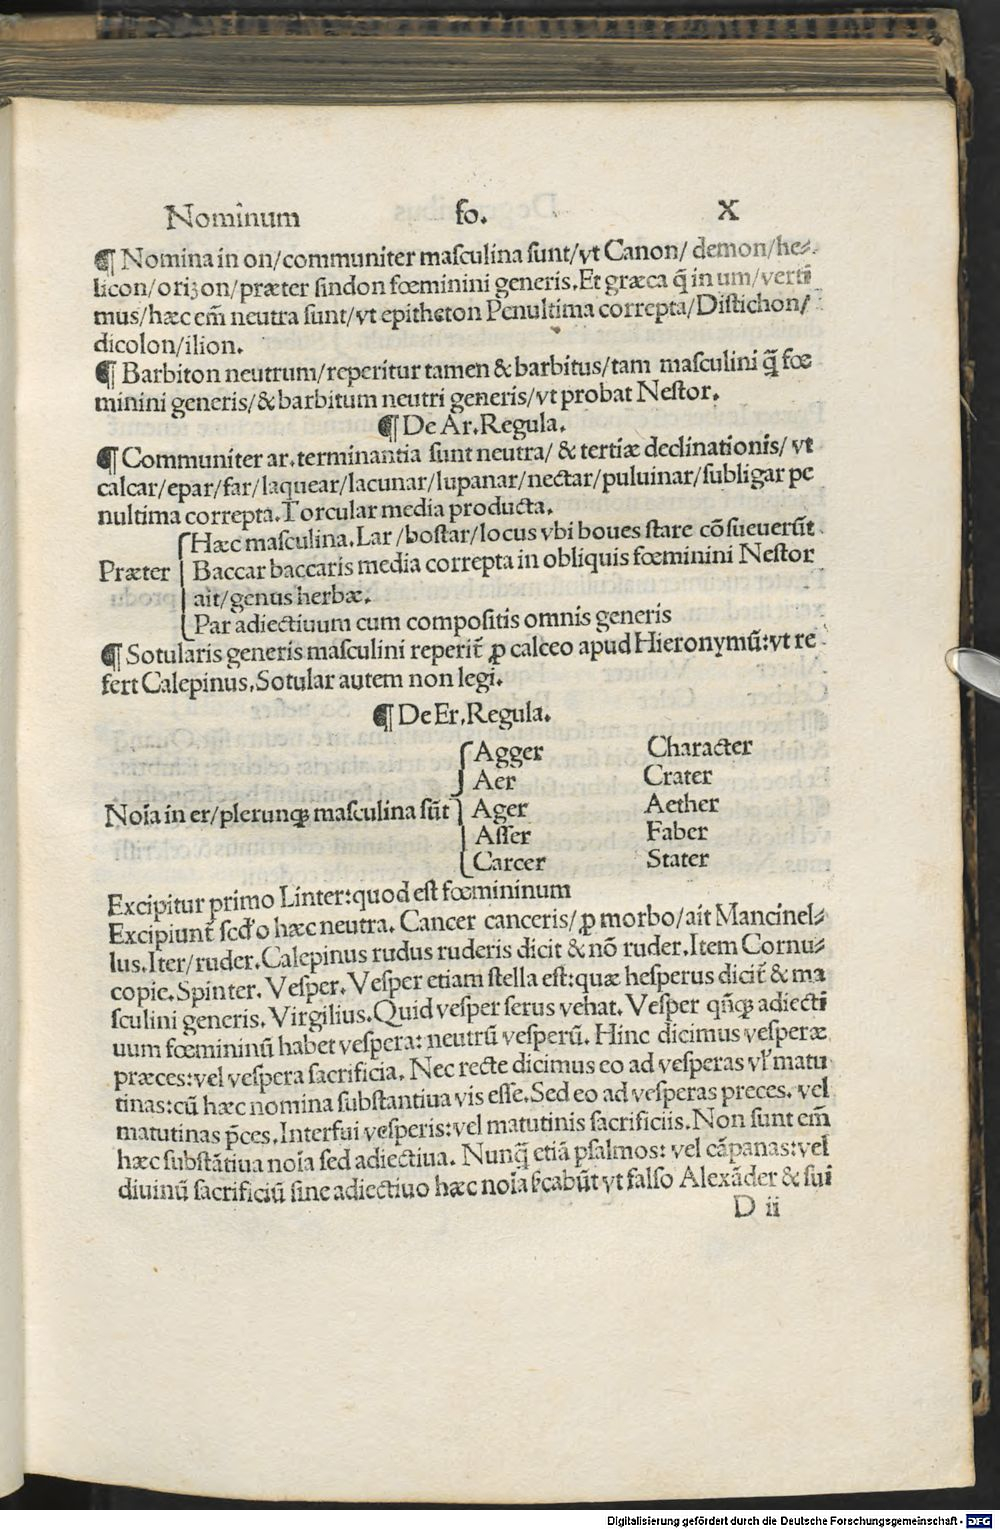 Nominum fo. X
¶ Nomina in on/communiter masculina sunt/vt Canon/ demon/he⸗
licon/orizon/præter sindon fœminini generis.Et græca q̃ in um/verti
mus/hæc em̃ neutra sunt/vt epitheton Penultima correpta/Distichon/
dicolon/ilion.
¶ Barbiton neutrum/reperitur tamen & barbitus/tam masculini q̃ fœ
minini generis/& barbitum neutri generis/vt probat Nestor.
¶ De Ar.Regula.
¶ Communiter ar.terminantia sunt neutra/ & tertiæ declinationis/ vt
calcar/epar/far/laquear/lacunar/lupanar/nectar/puluinar/subligar pe
nultima correpta.Torcular media producta.
Hæc masculina.Lar/bostar/locus vbi boues stare cõsueuerũt
Præter Baccar baccaris media correpta in obliquis fœminini Nestor
ait/genus herbæ.
Par adiectiuum cum compositis omnis generis
¶ Sotularis generis masculini reperit̃ ꝓ calceo apud Hieronymũ:vt re
fert Calepinus.Sotular autem non legi.
¶ De Er.Regula.
Agger Character
Aer Crater
Noĩa in er/plerunqꝫ masculina sũt Ager Aether
Asser Faber
Carcer Stater
Excipitur primo Linter:quod est fœmininum
Excipiunt̃ scd̃o hæc neutra. Cancer canceris/ꝓ morbo/ait Mancinel⸗
lus.Iter/ruder.Calepinus rudus ruderis dicit & nõ ruder.Item Cornu⸗
copie.Spinter. Vesper. Vesper etiam stella est:quæ hesperus dicit̃ & ma
sculini generis. Virgilius.Quid vesper serus vehat. Vesper qñqꝫ adiecti
uum fœmininũ habet vespera: neutrũ vesperũ. Hinc dicimus vesperæ
præces:vel vespera sacrificia. Nec recte dicimus eo ad vesperas vl̃ matu
tinas:cũ hæc nomina substantiua vis esse.Sed eo ad vesperas preces. vel
matutinas p̃ces.Interfui vesperis:vel matutinis sacrificiis.Non sunt em̃
hæc substãtiua noĩa sed adiectiua. Nunq̃ etiã psalmos: vel cãpanas:vel
diuinũ sacrificiũ sine adiectiuo hæc noĩa s̃cabũt vt falso Alexãder & sui
D ii
Digitalisierung gefördert durch die Deutsche Forschungsgemeinschaft - DFG